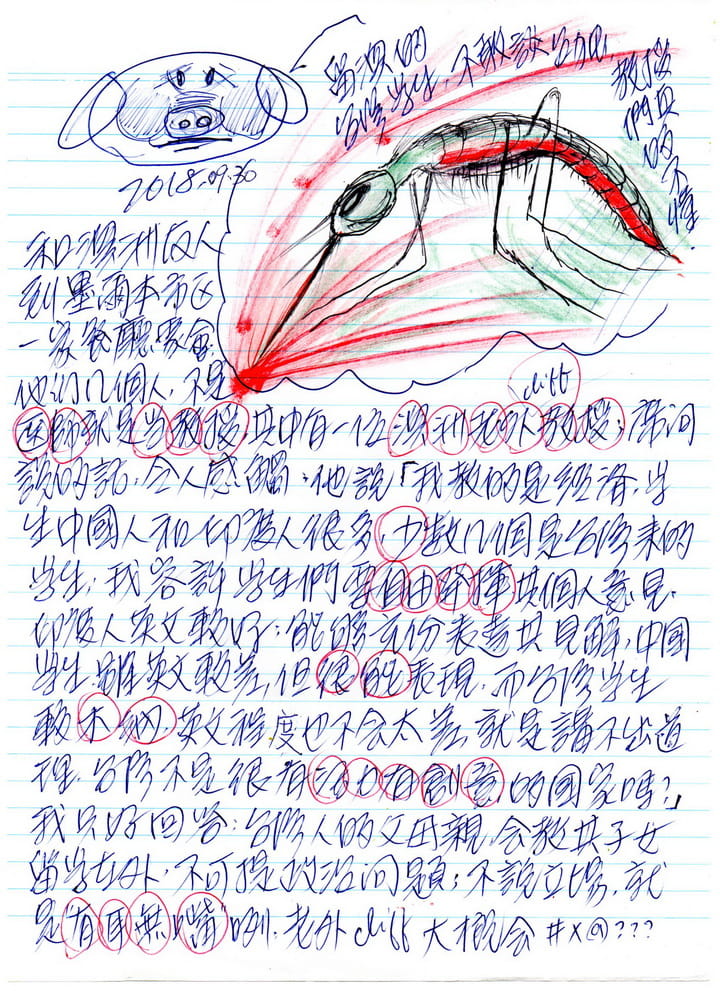 留澳的
台灣學生,不敢談
教授
們真
的不
懂.
2018.09.30
和澳洲友人
到墨爾本市區
一家餐廳聚會.
他们几個人,不是
cliff
医師就是当教授,其中有一位澳洲老外教授;席间
說的話,令人感觸:他說「我教的是經濟,学
生中國人和印度人很多,少数几個是台湾来的
学生;我容許学生們要自由發揮其個人意見.
印度人英文較好;能够充份表達其見解,中國
学生雖英文較差,但很能表現.而台湾学生
較木納,英文程度也不会太差,就是講不出道
理,台湾不是很有活力有創意的國家嗎?」
我只好回答:台湾人的父母親,会教其子女
留学在外,不可提政治问題;不說立場,就
是"有耳無嘴"咧!老外cliff大概会#X@???